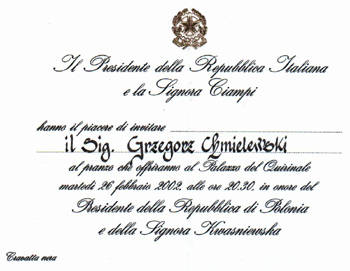 Il Presidente della Repubblica Italiana
e la Signora Ciampi
hanno il piacere di invitare
il Sig. Grzegorz Chmielewski
al pranzo che offriranno al Palazzo del Quirinale
martedì 26 febbraio 2002, alle ore 20.30, in onore del
Presidente della Repubblica di Polonia
e della Signora Kwasniewska
Cravatta nera